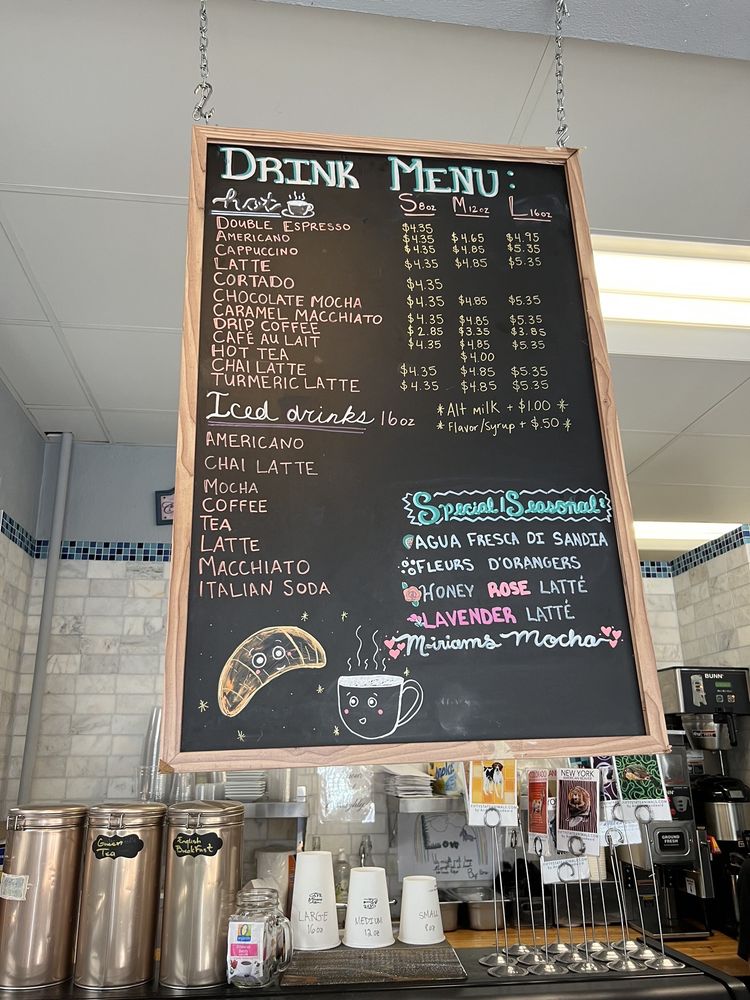 DRINK MENU:
hot S 8oz M 12oz L 16oz
DOUBLE ESPRESSO $4.35
AMERICANO $4.35 $4.65 $4.95
CAPPUCCINO $4.35 $4.85 $5.35
LATTE $4.35 $4.85 $5.35
CORTADO $4.35
CHOCOLATE MOCHA $4.35 $4.85 $5.35
CARAMEL MACCHIATO $4.35 $4.85 $5.35
DRIP COFFEE $2.85 $3.35 $3.85
CAFÉ AU LAIT $4.35 $4.85 $5.35
HOT TEA $4.00
CHAI LATTE $4.35 $4.85 $5.35
TURMERIC LATTE $4.35 $4.85 $5.35
*Alt milk + $1.00 *
*Flavor/Syrup + $.50 *
Iced drinks 16oz
AMERICANO
CHAI LATTE
MOCHA
COFFEE
TEA
LATTE
MACCHIATO
ITALIAN SODA
Special/Seasonal
AGUA FRESCA DI SANDIA
FLEURS D'ORANGERS
HONEY ROSE LATTÉ
LAVENDER LATTÉ
Miriams Mocha
BUNN
NEW YORK
GROUND FRESH
Green Tea
English Breakfast
LARGE
16oz
MEDIUM
12oz
SMALL
8oz